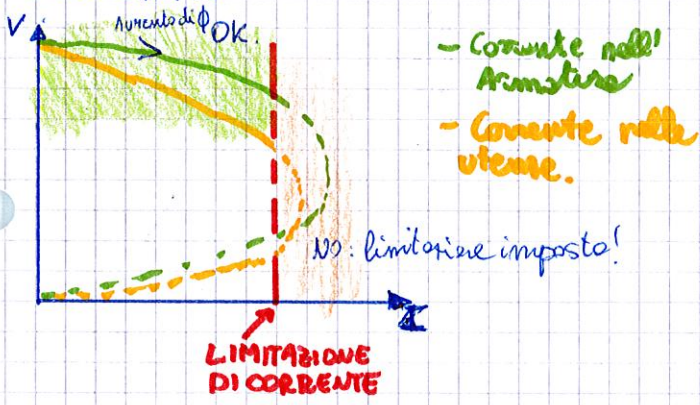 V
Aumento di ϕ
OK!
- Corrente nell'
Armatura
- Corrente nelle
utenze.
NO: limitazione imposta!
I
LIMITAZIONE
DI CORRENTE